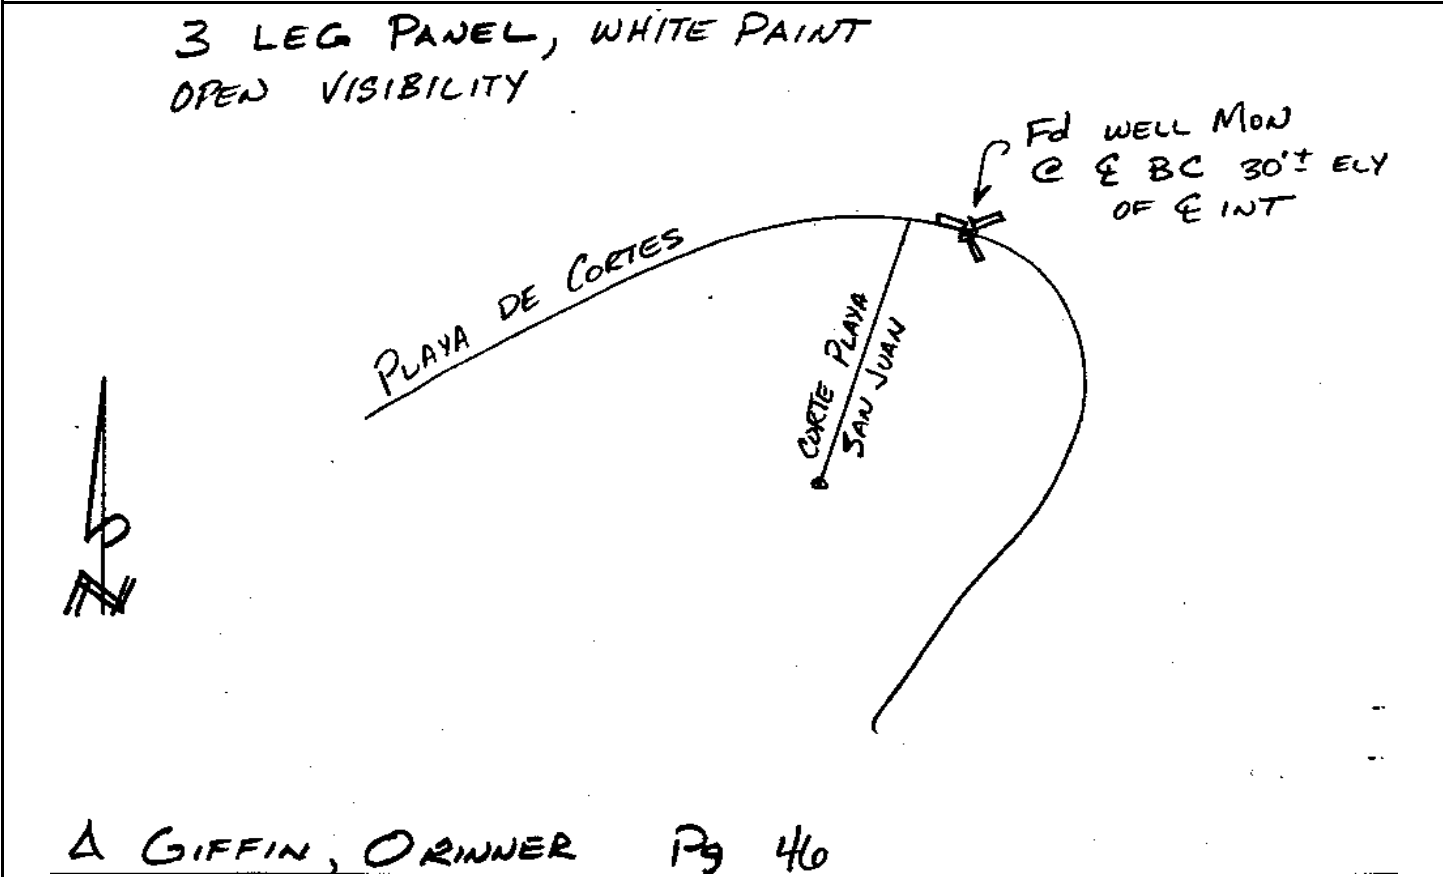 3 LEG PANEL, WHITE PAINT
OPEN VISIBILITY
Fd WELL MON
@ ℄ BC 30'± ELY
OF ℄ INT
PLAYA DE CORTES
CORTE PLAYA
SAN JUAN
N
Δ GIFFIN, O RINNER Pg 46